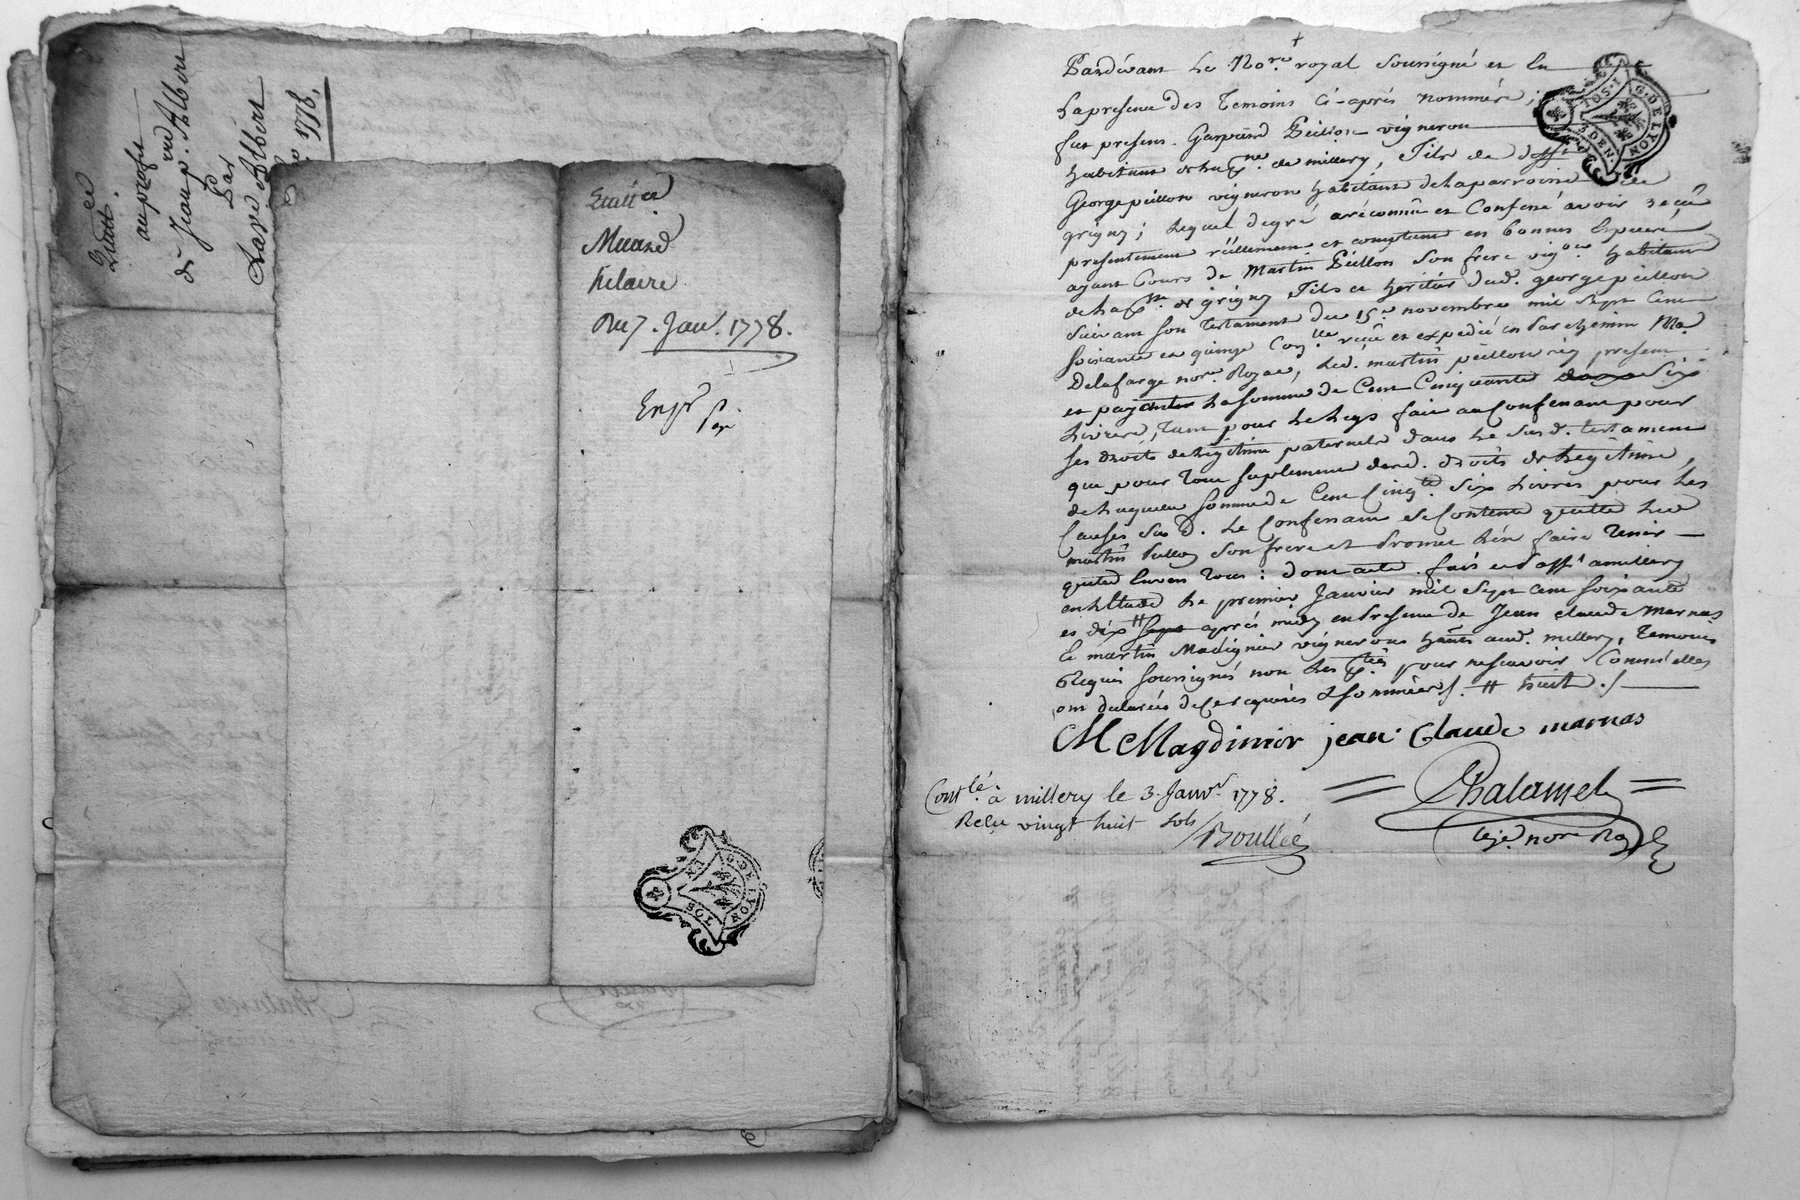 Quitt.ce
au profit
de Jean p.rre Albert
Par
Lazd. Albert
1778.
Quitt.ce
Muard
hilaire
Du 7. Janv.r 1778.
SOL
G. DE LYON
Pardevant Le No.re royal Soussigné et En
La presence des Temoins Ci-aprés nommés;
fut present Gaspard Peillon vigneron
habitant de la de millery, Fils de deff.t
George peillon vigneron habitant de la parroisse de
grigny; Lequel de gré a reconnû et Confessé avoir recû
presentement réellement et comptant en bonnes Especes
ayant Cours de Martin Peillon Son frere vig.on habitant
de la de grigny Fils et heritier dud. george peillon
Suivant Son Testament du 15.e novembre mil Sept Cent
Soixante et quinze reçû et expedié en Parchemin Me.
Delafarge nore. Royal, Led. martin peillon icy present
et payant La Somme de Cent Cinquante Six
Livres, Tant pour Le Legs fait au Confessant pour
Ses droits de Légitime paternels dans Le Susd. testament
que pour Tout Suplement desd. droits de Légitime,
de Laquelle Somme de Cent Cinq.te Six Livres pour Les
Causes Susd. Le Confessant Se Contente quitte Led
martin Peillon Son frere et Promet L'en faire Tenir
quitte Envers Tous: dont acte. fait et Passé a millery
en L'Etude Le premier Janvier mil Sept Cent Soixante
et dix # aprés midy en Presence de Jean Claude Marnas
Et martin Madignier vignerons habitants aud. millery, Temoins
Requis Soussignés non Les parties pour ne Scavoir Comme elles
ont declarées de Ce requises & Sommées /. # huit ./
M Magdinier jean Claude marnas
Chalamel
Cont.lé à millery le 3. Janv.r 1778.
Reçu vingt huit sols
Boullée
nore Roy
G. DE LYON
2 SOLS
DEN.